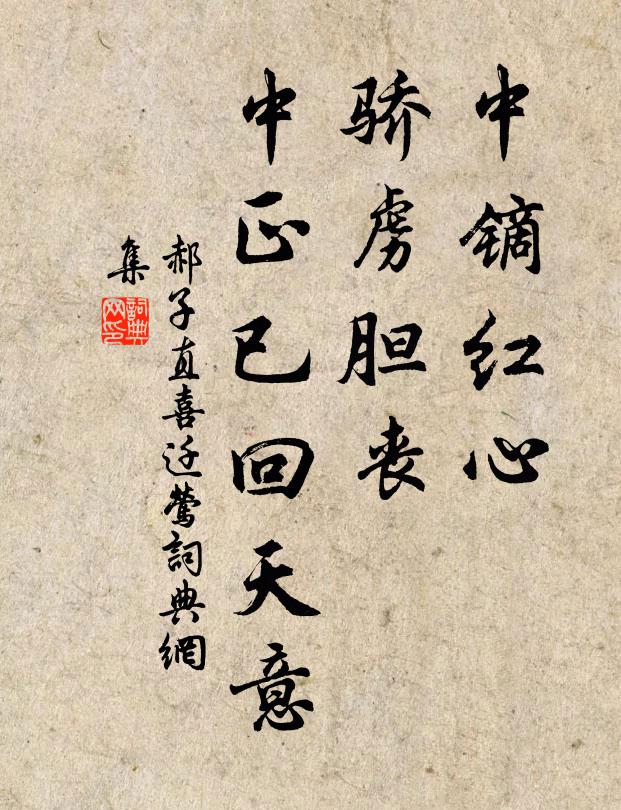 中镝红心
骄虏胆丧
中正已回天意
郝子直喜迁莺詞典網
集
詞典
网印